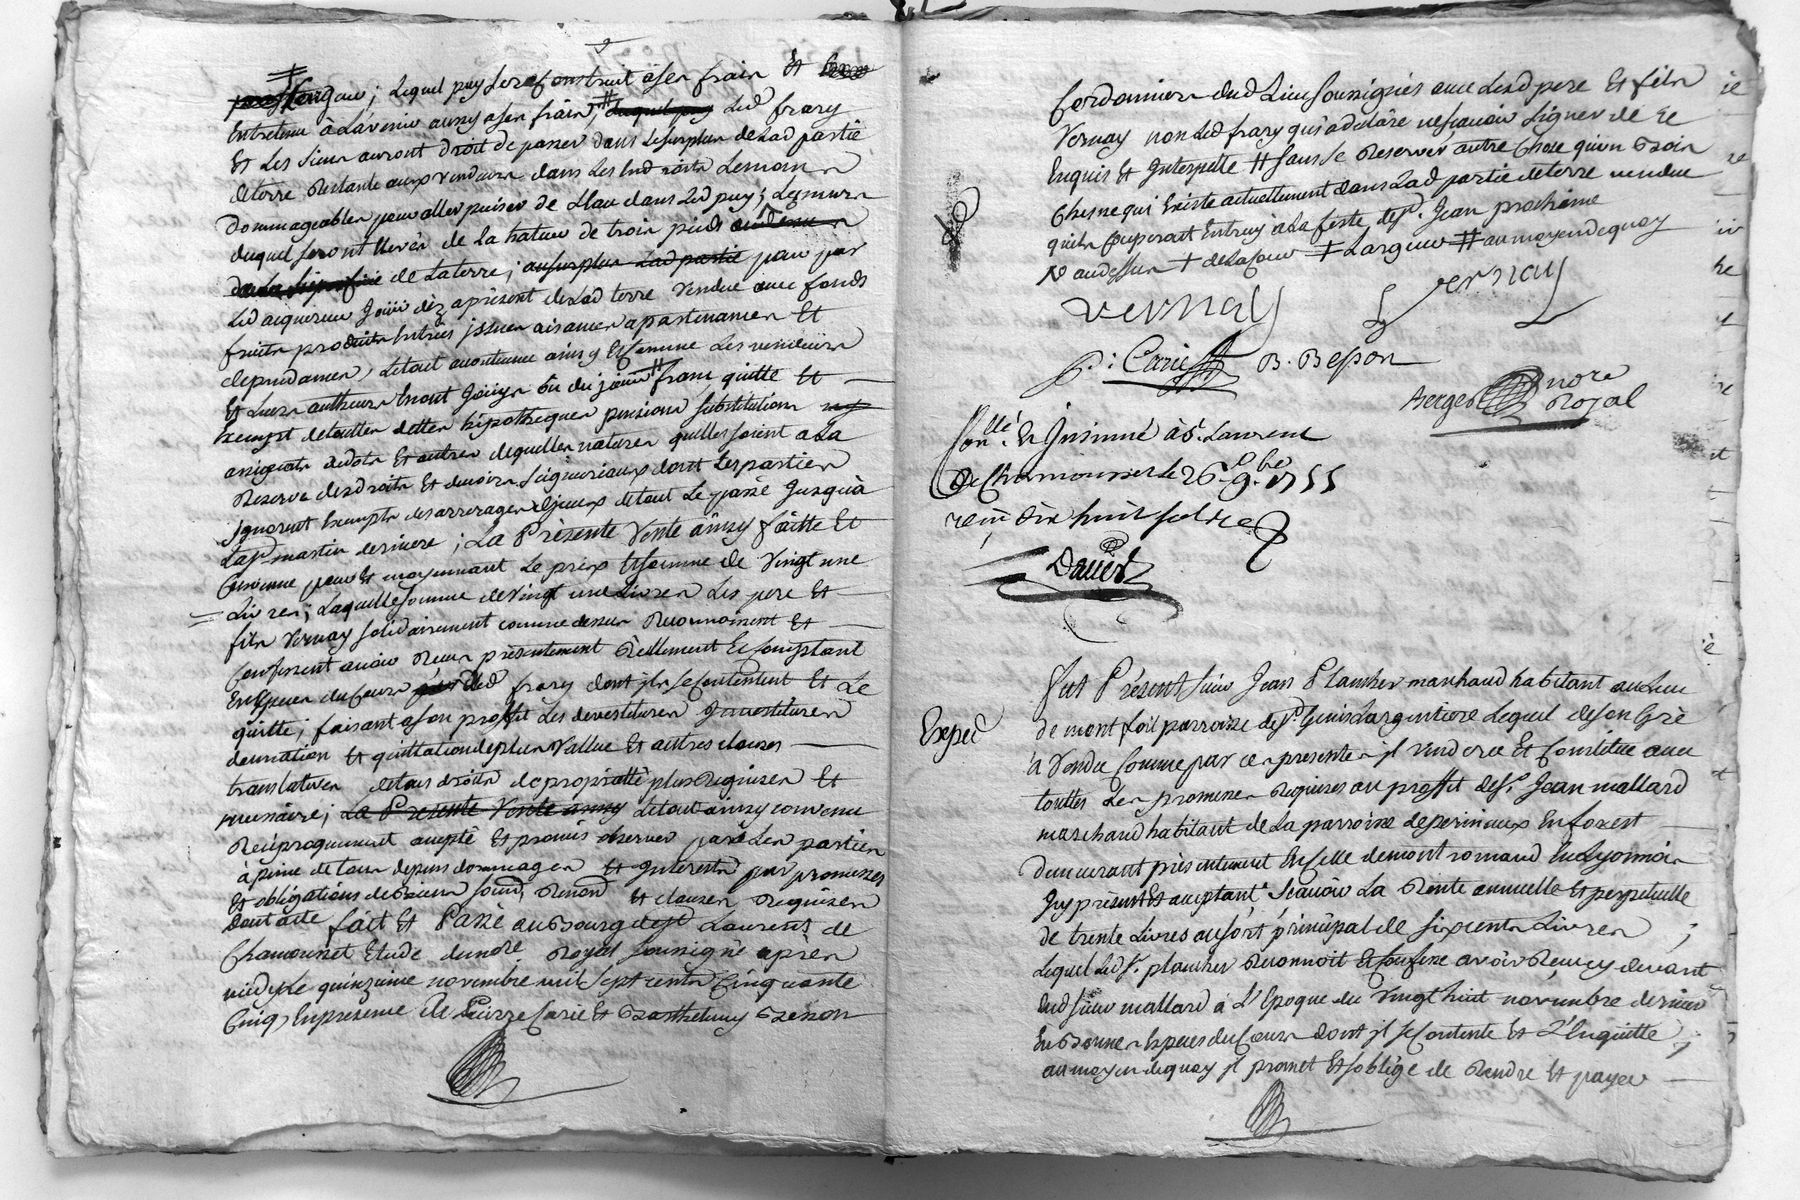 lequel puy sera construit a ses frais Et
Entretenu à L'avenir aussy a ses frais, Led frary
Et Les siens auront droit de passer dans Lesurplus de Lad partie
deterre Restante aux vendeurs dans Les Endroits Lemoins
Dommageables pour aller puiser de L'eau dans Led puy; Lemurs
duquel seront Elevés de la hateur de trois pieds
de La superficie de Laterre; au surplus Lad partie pour par
Led acquereur Jouir dez apresent de Lad terre vendue avec fonds
fruits produits Entrées issues aisances apartenances Et
dependances, Letout aux
Et Leurs autheurs Enont Jouy ou du jouir franc quitte Et
Exempt detouttes dettes hipotheques pensions substitutions
Et autres dequelles natures quelles soient a La
Reserve desdroits Et devoirs seigneuriaux dont Lesparties
Ignorent Exempts des arrerages d'Iceux detout Le passé Jusqu'à
La St martin derniere; La Présente Vente ainsy faitte Et
Convenue pour Et moyennant Le prix Et somme de Vingt une
Livres; Laquelle somme de vingt une Livres Les pere Et
fils Vernay solidairement comme dessus Reconnoissent Et
Confessent avoir Receu présentement Réellement Et Comptant
En Especes du Cours dud frary dont ils se Contentent Et Le
quitte; faisant a son proffit Les devestitures Investitures
demission Et quittation de plus vallue Et autres clauses
translatives detous droits de propriétté plus Requises Et
necessaires; La Présente Vente ainsy Letout ainsy convenu
Reciproquement accepté Et promis observer par Les parties
à peine de tous depens dommages Et Interests par promesses
Et obligations de Biens soum, Renon Et clauses Requises
dont acte fait Et Passé au Bourg de St Laurent de
Chamousset Etude du no.re Royal soussigné après
midy Le quinzieme novembre mil sept cents Cinquante
Cinq, En presence de Pierre Carie Et Barthelemy Besson
Cordonniers dud Lieu soussignés avec Lesd pere Et fils
Vernay non Led frary qui a declaré ne sçavoir signer de ce
Enquis Et Interpellé # sans se Reserver autre chose qu'un Bois
Chesne qui Existe actuellement dans Lad partie deterre vendue
quils Couperont Entrecy a La feste de St. Jean prochaine
audessus + de La Cour ‡ Largeur # au moyen dequoy
vernay vernay
p: Carie B. Besson
Berger no.re Royal
Con.llé Et Insinué à St. Laurent
De Chamousset le 26. 9.bre 1755
reçu dix huit sols
Davier
Fut Présent sieur Jean Plancher marchand habitant au Lieu
Expéd
de mont foit parroisse de St Genis L'argentiere Lequel de son Gré
a Vendu Comme par ces presentes il vend cree Et Constitue avec
touttes Les promesses Requises au proffit de Sr. Jean mallard
marchand habitant de La parroisse de perineux En forest
demeurant présentement En Celle de mont romand En Lyonnois
Icy présent Et acceptant Scavoir La Rente annuelle Et perpetuelle
de trente Livres au sort principal de six cents Livres;
Lequel Led Sr. plancher Reconnoit Et Confesse avoir Receu cy devant
dud sieur mallard à L'Epoque du Vingt huit novembre dernier
En Bonnes Especes du Cours dont il se Contente Et L'En quitte;
au moyen dequoy il promet Et s'oblige de Rendre Et payer